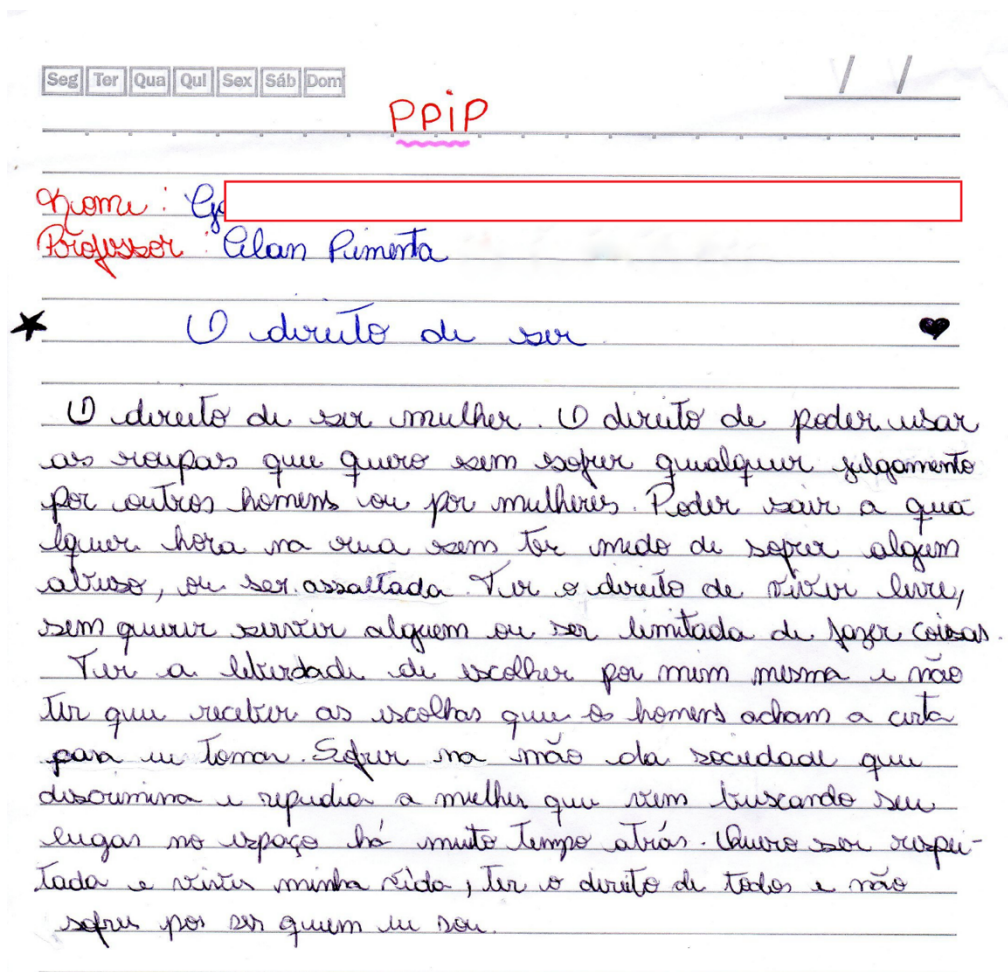 Seg Ter Qua Qui Sex Sáb Dom / /
PPiP
Nome: Ge
Professor: Alan Pimenta
O direito de ser
O direito de ser mulher. O direito de poder usar
as roupas que quero sem sofrer qualquer julgamento
por outros homens ou por mulheres. Poder sair a qua
lquer hora na rua sem ter medo de sofrer algum
abuso, ou ser assaltada. Ter o direito de viver livre,
sem querer servir alguem ou ser limitada de fazer coisas.
Ter a liberdade de escolher por mim mesma e não
ter que receber as escolhas que os homens acham a certa
para eu tomar. Sofrer na mão da sociedade que
discrimina e repudia a mulher que vem buscando seu
lugar no espaço há muito tempo atrás. Quero ser respei-
tada e viver minha vida, ter o direito de todos e não
sofrer por ser quem eu sou.